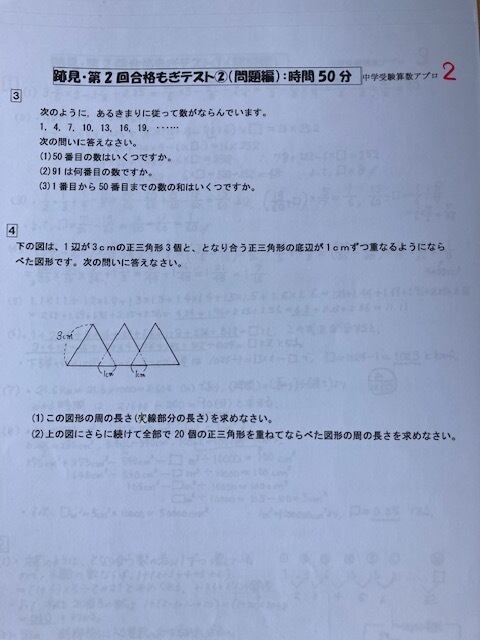 跡見・第2回合格もぎテスト②(問題編):時間50分 中学受験算数アプロ 2
3
次のように, あるきまりに従って数がならんでいます。
1, 4, 7, 10, 13, 16, 19, ‥‥‥
次の問いに答えなさい。
(1)50番目の数はいくつですか。
(2)91は何番目の数ですか。
(3)1番目から50番目までの数の和はいくつですか。
4
下の図は、1辺が3cmの正三角形3個と、となり合う正三角形の底辺が1cmずつ重なるようになら
べた図形です。次の問いに答えなさい。
3cm
1cm 1cm
(1)この図形の周の長さ(実線部分の長さ)を求めなさい。
(2)上の図にさらに続けて全部で20個の正三角形を重ねてならべた図形の周の長さを求めなさい。